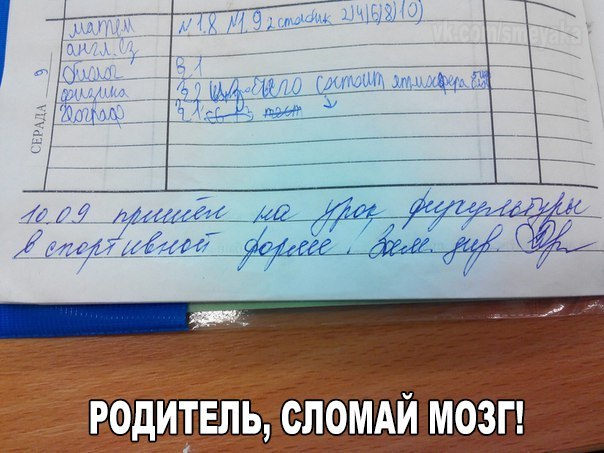 vk.com/smeyaka
матем N1.8 N1.9 2 столбик 2)4)6)8)10)
англ. яз
биолог § 1
физика § 2 из чего состоит атмосфера
географ § 1
СЕРАДА 9
10 09 пришёл на урок физкультуры
в спортивной форме. Зам. дир.
РОДИТЕЛЬ, СЛОМАЙ МОЗГ!